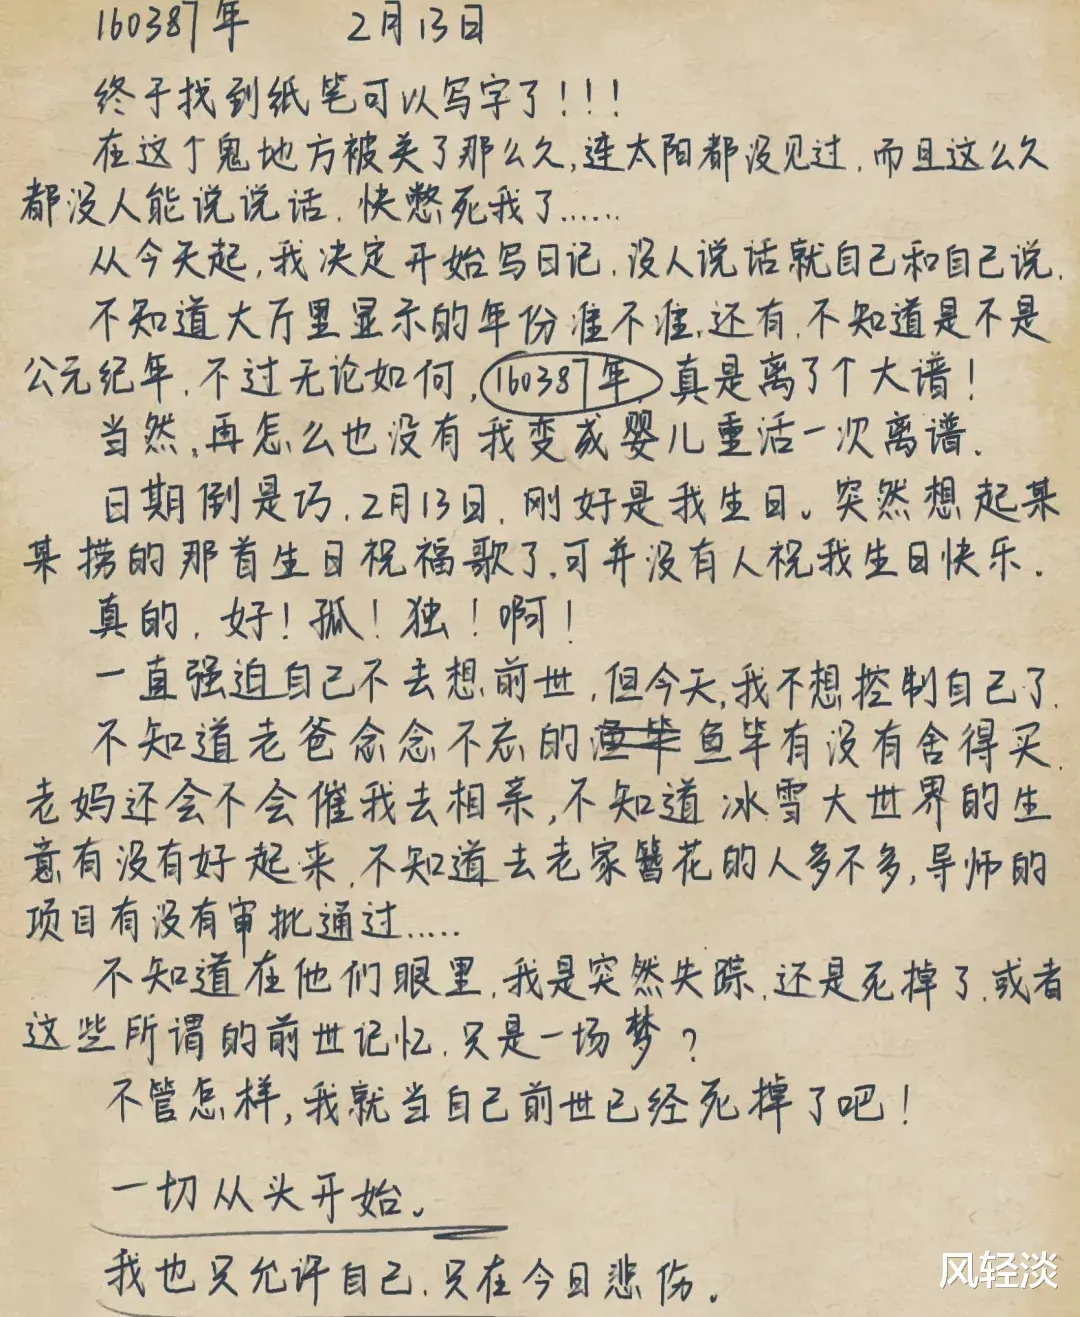 160387年 2月13日
终于找到纸笔可以写字了!!!
在这个鬼地方被关了那么久,连太阳都没见过,而且这么久
都没人能说说话,快憋死我了……
从今天起,我决定开始写日记,没人说话就自己和自己说.
不知道大厅里显示的年份准不准,还有,不知道是不是
公元纪年,不过无论如何,160387年,真是离了个大谱!
当然,再怎么也没有我变成婴儿重活一次离谱.
日期倒是巧,2月13日,刚好是我生日。突然想起某
某捞的那首生日祝福歌了,可并没有人祝我生日快乐.
真的,好!孤!独!啊!
一直强迫自己不去想前世,但今天,我不想控制自己了.
不知道老爸念念不忘的渔竿鱼竿有没有舍得买.
老妈还会不会催我去相亲,不知道冰雪大世界的生
意有没有好起来,不知道去老家簪花的人多不多,导师的
项目有没有审批通过……
不知道在他们眼里,我是突然失踪,还是死掉了,或者
这些所谓的前世记忆,只是一场梦?
不管怎样,我就当自己前世已经死掉了吧!
一切从头开始。
我也只允许自己,只在今日悲伤。
风轻淡